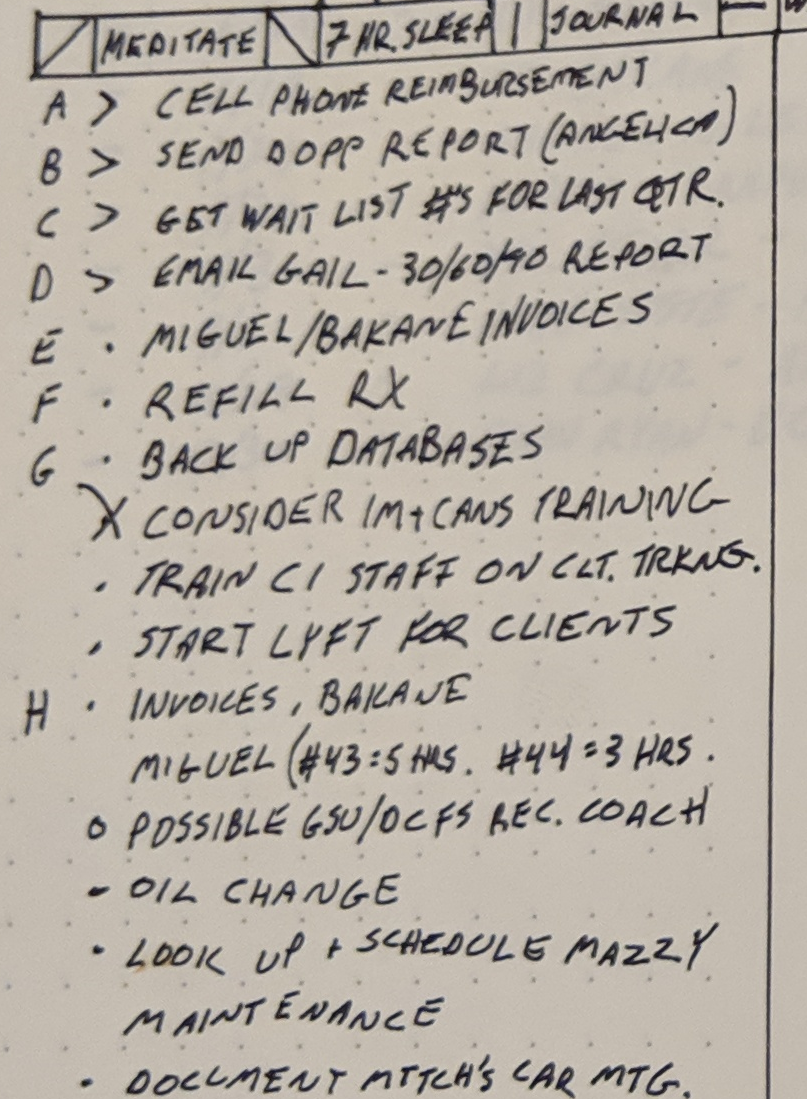 MEDITATE 7 HR. SLEEP JOURNAL
A > CELL PHONE REIMBURSEMENT
B > SEND DOPP REPORT (ANGELICA)
C > GET WAIT LIST #'S FOR LAST QTR.
D > EMAIL GAIL - 30/60/90 REPORT
E · MIGUEL/BAKANE INVOICES
F · REFILL RX
G · BACK UP DATABASES
X CONSIDER IM+CANS TRAINING
· TRAIN CI STAFF ON CLT. TRKNG.
· START LYFT FOR CLIENTS
H · INVOICES, BAKANE
MIGUEL (#43=5 HRS. #44=3 HRS.
o POSSIBLE GSU/DCFS REC. COACH
- OIL CHANGE
· LOOK UP + SCHEDULE MAZZY
MAINTENANCE
· DOCUMENT MITCH'S CAR MTG.